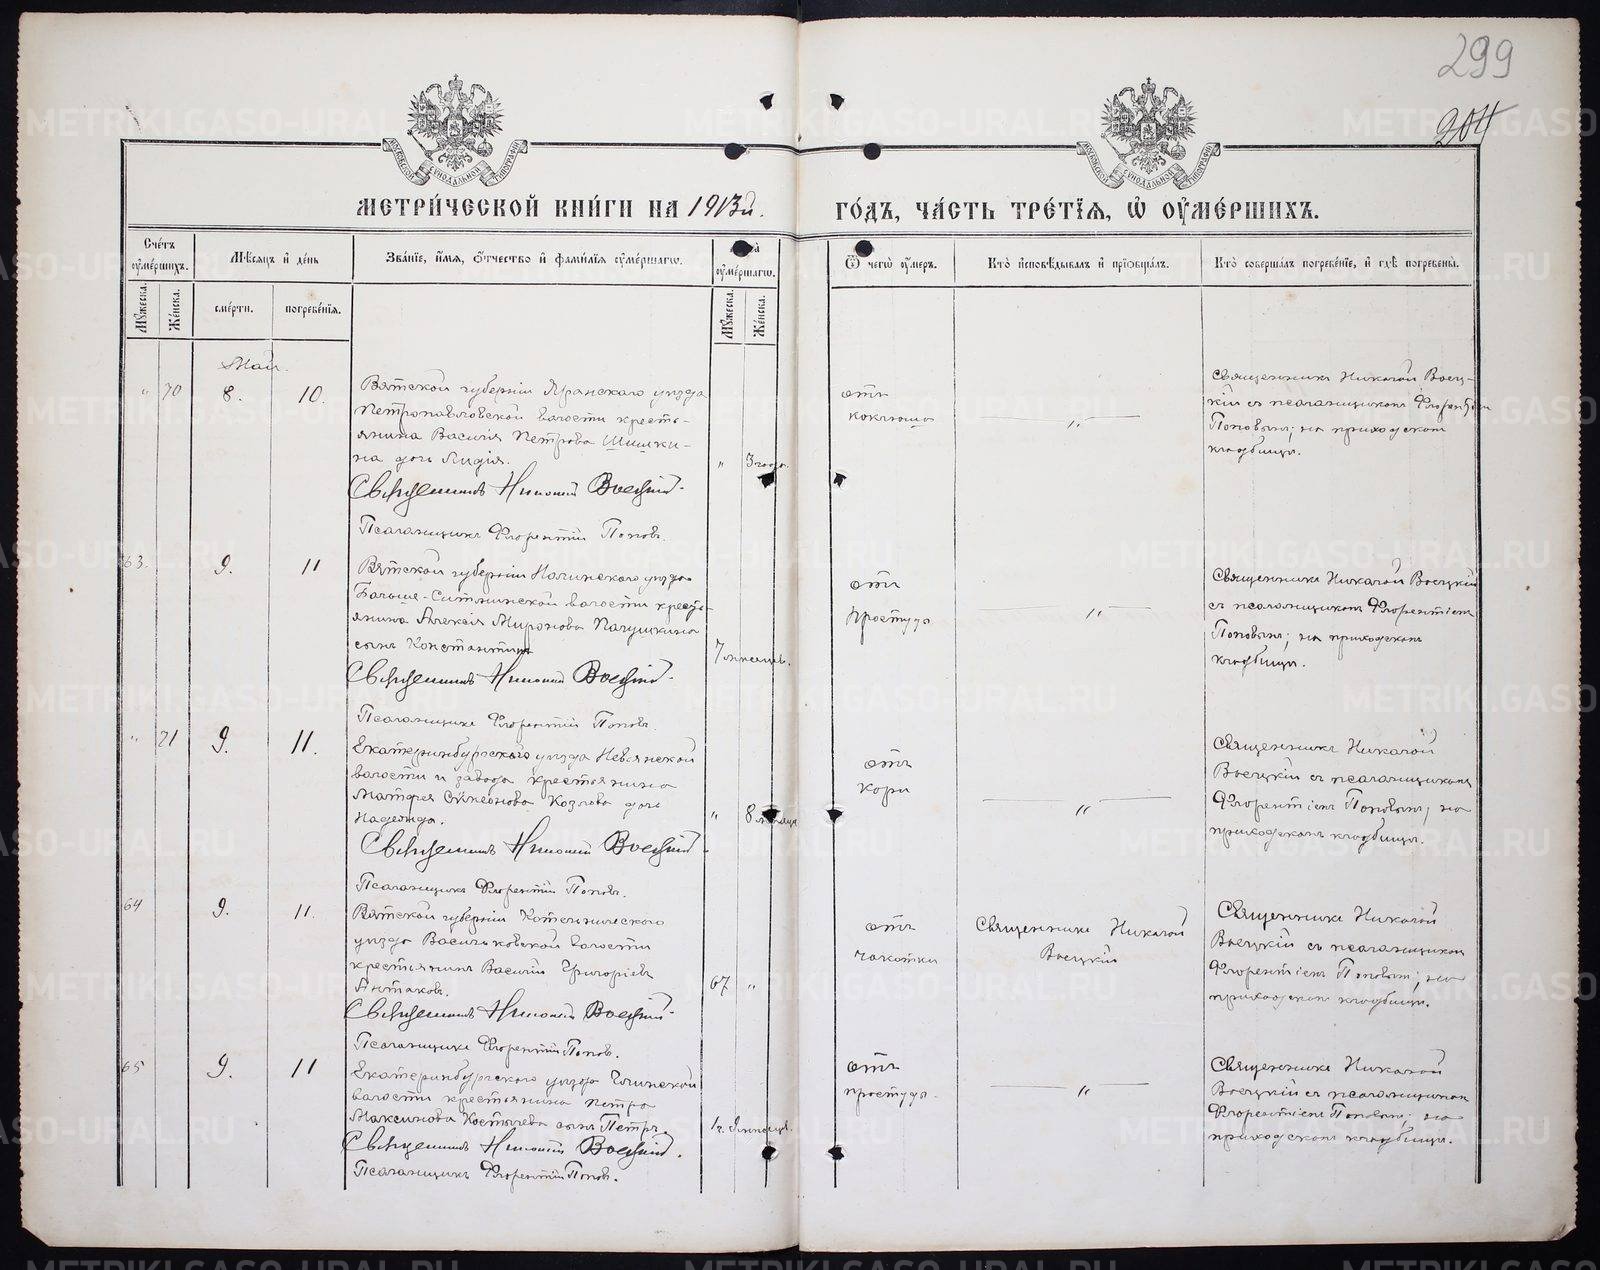 299
204
МЕТРИЧЕСКОЙ КНИГИ НА 1913й. ГОДЪ, ЧАСТЬ ТРЕТІЯ, Ѿ ОУМЕРШИХЪ.
Счетъ оумершихъ.
Мѣсяцъ и день
Званіе, имя, отчество и фамилія оумершагѡ.
оумершагѡ.
Ѿ чегѡ оумеръ.
Кто исповѣдывалъ и пріобщалъ.
Кто совершалъ погребеніе, и гдѣ погребены.
Мужеска.
Женска.
смерти.
погребенія.
Мужеска.
Женска.
Май.
" 70 8. 10.
Вятской губерніи Яранскаго уѣзда
Петропавловской волости кресть-
янина Василія Петрова Шишки-
на дочь Лидія.
" 3 года.
отъ
коклюша
"
Священникъ Николай Воец-
кій съ псаломщикомъ Флорентіем
Поповымъ; на приходскомъ
кладбищѣ.
Священникъ Николай Воецкій.
Псаломщикъ Флорентій Поповъ.
63. 9. 11
Вятской губерніи Нолинскаго уѣзда
Больше-Ситминской волости кресть-
янина Алексія Миронова Палушкина
сынъ Константинъ
7 мѣсяцев.
отъ
простуды
"
Священникъ Николай Воецкій
съ псаломщикомъ Флорентіемъ
Поповымъ; на приходскомъ
кладбищѣ.
Священникъ Николай Воецкій.
Псаломщикъ Флорентій Поповъ.
" 71 9. 11.
Екатеринбургскаго уѣзда Невьянской
волости и завода крестьянина
Матфея Симеонова Козлова дочь
Надежда.
" 8 мѣсяц
отъ
кори
"
Священникъ Николай
Воецкій съ псаломщикомъ
Флорентіемъ Поповымъ, на
приходскомъ кладбищѣ.
Священникъ Николай Воецкій.
Псаломщикъ Флорентій Поповъ.
64 9. 11.
Вятской губерніи Котельническаго
уѣзда Васильковской волости
крестьянинъ Василій Григоріевъ
67 "
отъ
чахотки
Священникъ Николай
Воецкій
Священникъ Николай
Воецкій съ псаломщикомъ
Флорентіемъ Поповым; на
приходском кладбищѣ.
Священникъ Николай Воецкій.
Псаломщикъ Флорентій Поповъ.
65 9. 11
Екатеринбургскаго уѣзда Глинской
волости крестьянина Петра
Максимова Костычева сынъ Петръ.
1 г. 9 мѣсяцев.
отъ
простуды.
"
Священникъ Николай
Воецкій съ псаломщиком
Флорентіем Поповым; на
приходскомъ кладбищѣ.
Священникъ Николай Воецкій.
Псаломщикъ Флорентій Поповъ.
METRIKI.GASO-URAL.RU